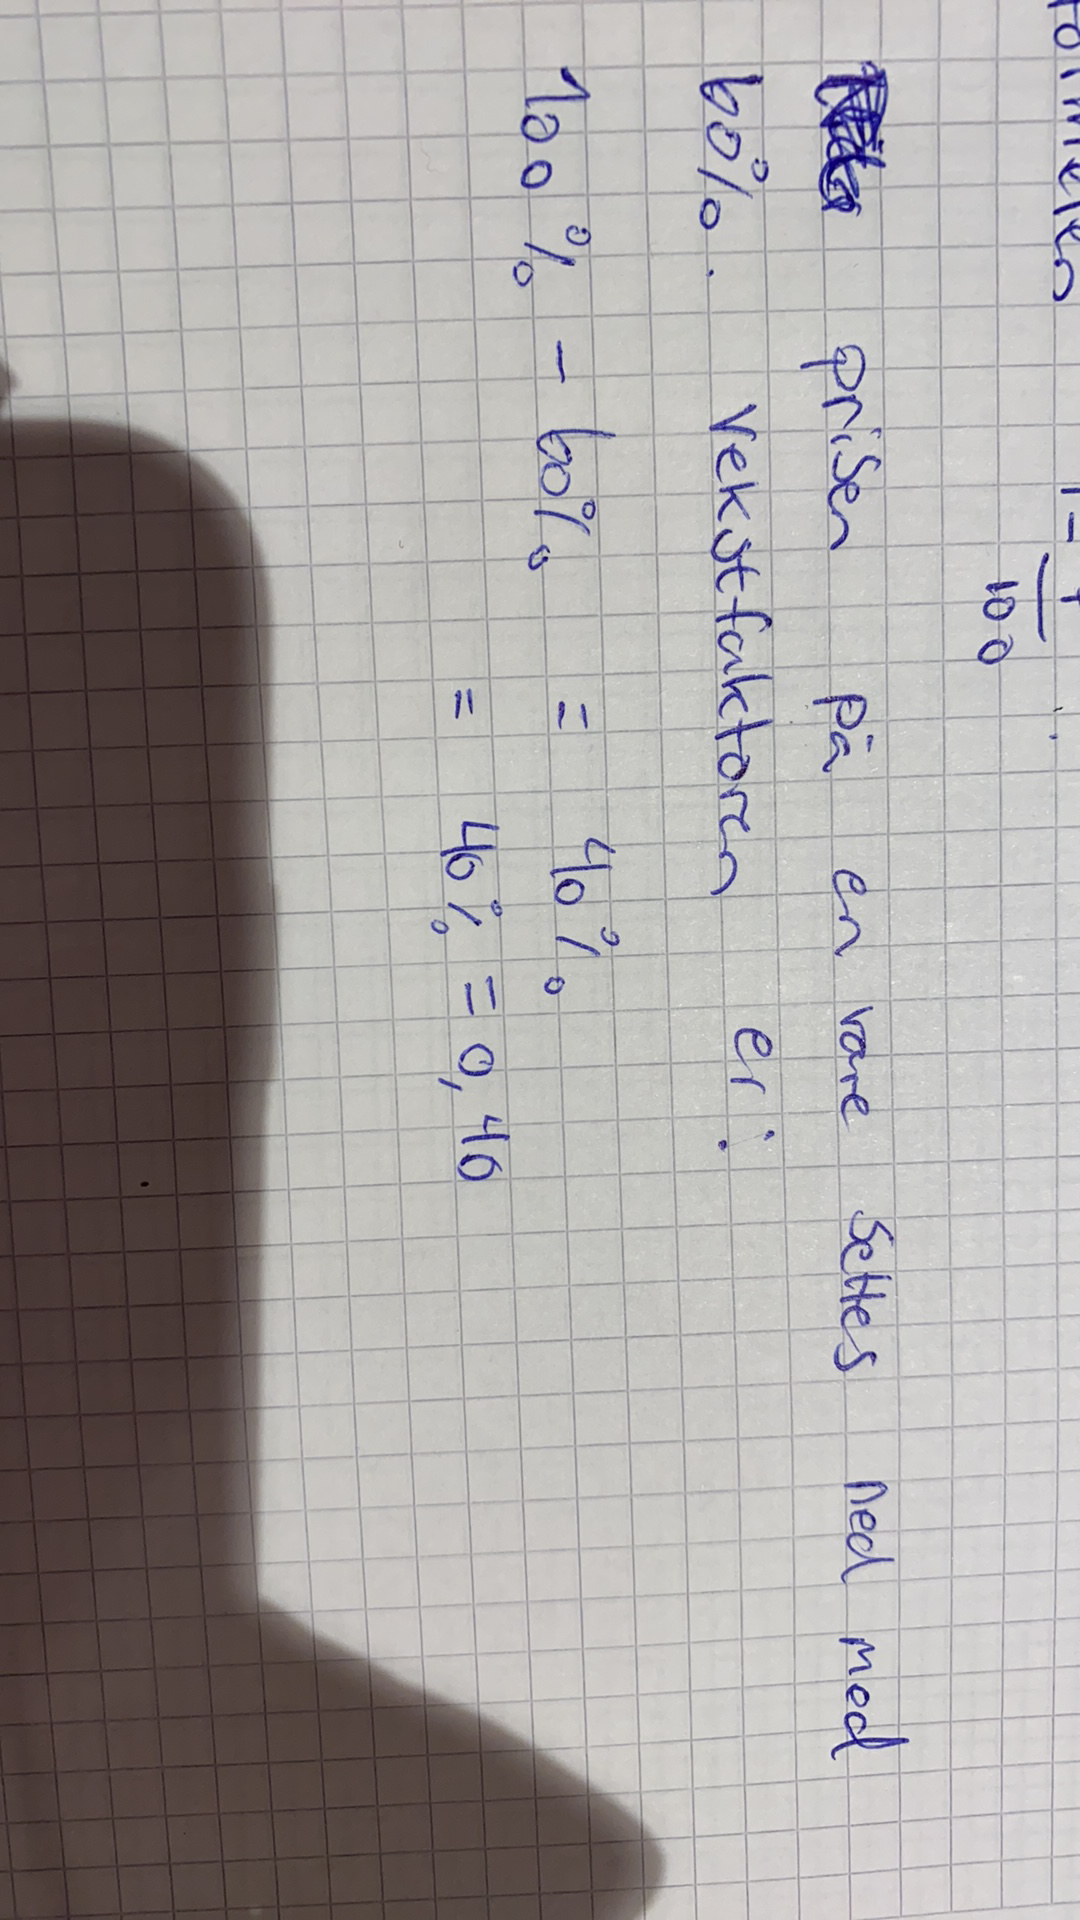 formelen 1-
100
prisen på en vare settes ned med
60%. Vekstfaktoren er:
100% - 60% = 40%
= 40% = 0,40